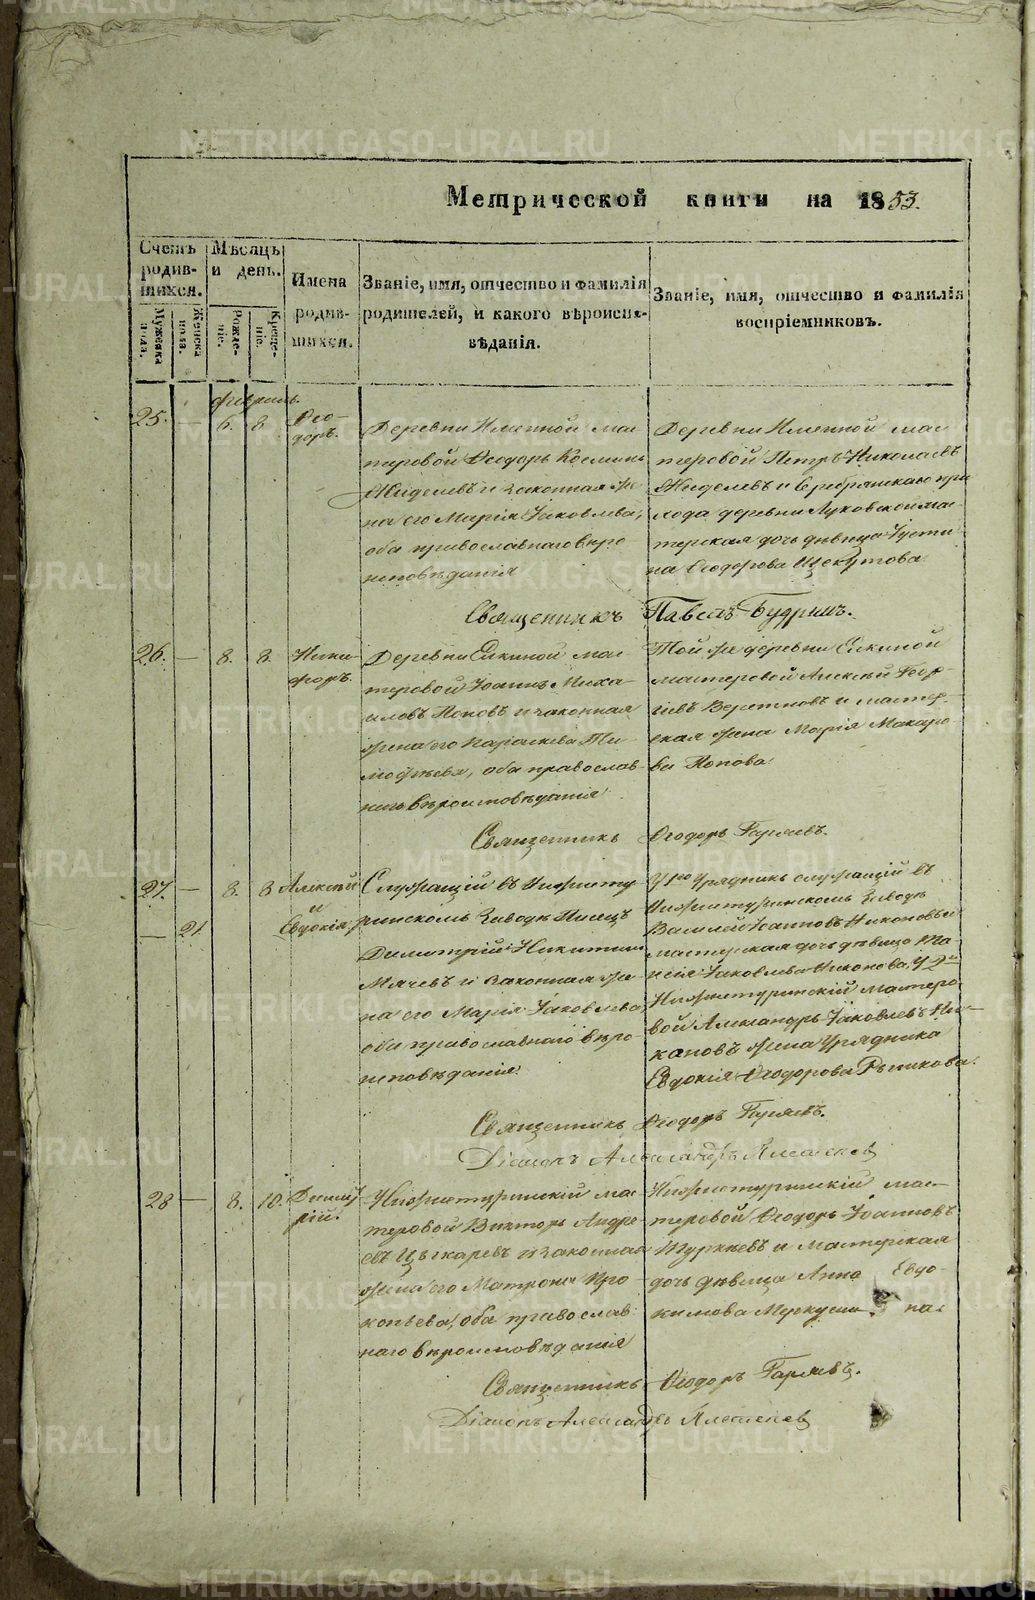 Метрической книги на 1853.
Счетъ родившихся.
Мѣсяцъ и день.
Имена родившихся.
Званіе, имя, отчество и фамилія родителей, и какого вѣроисповѣданія.
Званіе, имя, отчество и фамилія воспріемниковъ.
Мужеска пола.
Женска пола.
Рожденіе.
Крещеніе.
февраль.
25. — 6. 8. Ѳео-
доръ.
Деревни Именной мас-
теровой Ѳеодоръ Косминъ
Жиделевъ и законная же-
на его Марія Іаковлева,
оба православнаго вѣро
исповѣданія
Деревни Именной мас
теровой Петръ Николаевъ
Жиделевъ и
хода деревни Луковской ма-
терская дочь дѣвица Іусти-
на Ѳеодорова Щекутова
Священникъ Павелъ Будринъ.
26. — 8. 8. Ники-
форъ.
Деревни Елкиной мас
теровой Іоаннъ Миха-
иловъ Поповъ и законная
жена его Параскева Ти-
моѳѣева, оба православ-
наго вѣроисповѣданія
Той же деревни Елкиной
мастеровой Алексѣй Геор-
гіевъ Веретновъ и мастер-
ская жена Марія Макаро-
ва Попова.
Священникъ Ѳеодоръ Гаряевъ.
27. — 8. 8 Алексѣй
и
— 21. Евдокія.
Служащій въ Нижнету-
ринскомъ Заводѣ Писецъ
Димитрій Никитинъ
Мячевъ и законная же-
на его Марія Іаковлева
оба православнаго вѣро
исповѣданія.
У 1го Урядникъ служащій въ
Нижнетуринскомъ Заводѣ
Василій Іоанновъ Никоновъ и
мастерская дочь дѣвица Та-
исія Іаковлева Никонова, У 2й
Нижнетуринскій мастеро-
вой Александръ Іаковлевъ Ни-
кановъ жена Урядника
Евдокія Ѳеодорова Рычкова.
Священникъ Ѳеодоръ Гаряевъ.
Діаконъ Александръ
28 — 8. 10. Димит
рій.
Нижнетуринскій мас
теровой Викторъ Андре-
евъ Цыкаревъ и законная
жена его Матрона Про-
копьева, оба православ-
наго вѣроисповѣданія
Нижнетуринскій мас-
теровой Ѳеодоръ Іоанновъ
Туркневъ и мастерская
дочь дѣвица Анна Евдо-
кимова Меркуши на.
Священникъ Ѳеодоръ Гаряевъ.
Діаконъ Александръ
METRIKI.GASO-URAL.RU